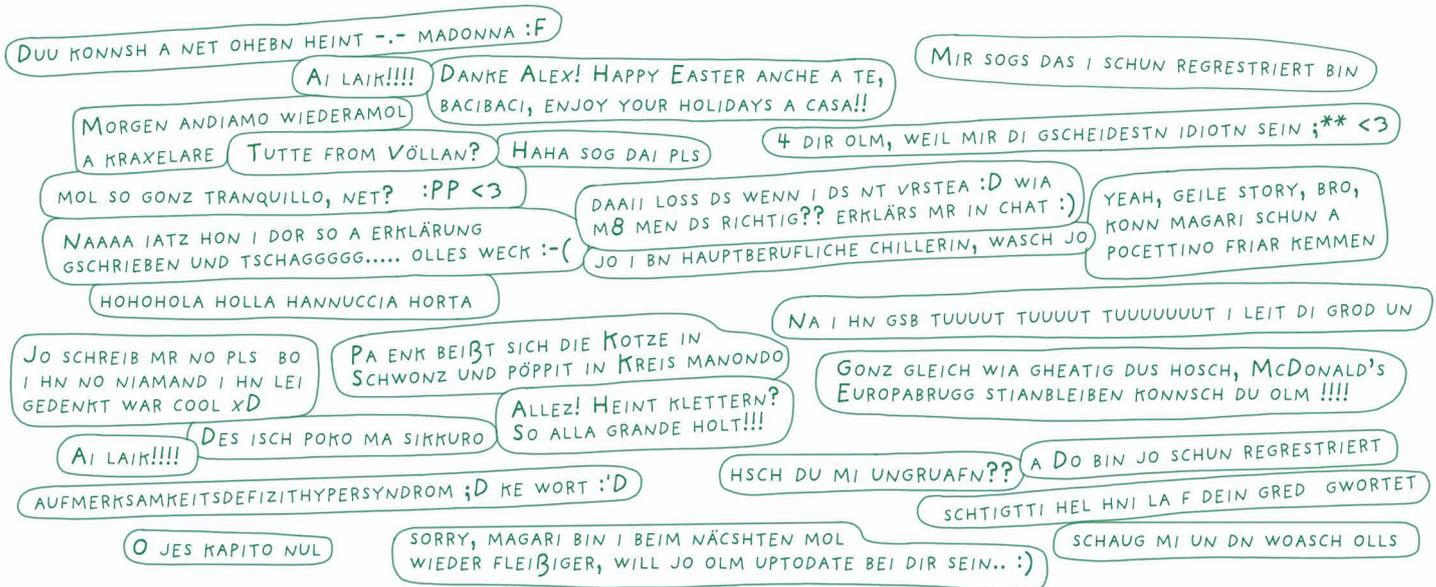 Duu konnsh a net ohebn heint -.- madonna :F
Ai laik!!!!
Danke Alex! Happy Easter anche a te,
bacibaci, enjoy your holidays a casa!!
Mir sogs das i schun regrestriert bin
Morgen andiamo wiederamol
a kraxelare
Tutte from Völlan?
Haha sog dai pls
4 dir olm, weil mir di gscheidestn idiotn sein ;** <3
mol so gonz tranquillo, net? :PP <3
daaii loss ds wenn i ds nt vrstea :D wia
m8 men ds richtig?? erklärs mr in chat :)
yeah, geile story, bro,
konn magari schun a
pocettino friar kemmen
Naaaa iatz hon i dor so a erklärung
gschrieben und tschaggggg..... olles weck :-(
jo i bn hauptberufliche chillerin, wasch jo
hohohola holla hannuccia horta
Na i hn gsb tuuuut tuuuut tuuuuuuut i leit di grod un
Jo schreib mr no pls bo
i hn no niamand i hn lei
gedenkt war cool xD
Pa enk beißt sich die Kotze in
Schwonz und pöppit in Kreis manondo
Gonz gleich wia gheatig dus hosch, McDonald's
Europabrugg stianbleiben konnsch du olm !!!!
Allez! Heint klettern?
So alla grande holt!!!
Des isch poko ma sikkuro
Ai laik!!!!
hsch du mi ungruafn??
a Do bin jo schun regrestriert
aufmerksamkeitsdefizithypersyndrom ;D ke wort :'D
schtigtti hel hni la f dein gred gwortet
o jes kapito nul
sorry, magari bin i beim näcshten mol
wieder fleißiger, will jo olm uptodate bei dir sein.. :)
schaug mi un dn woasch olls